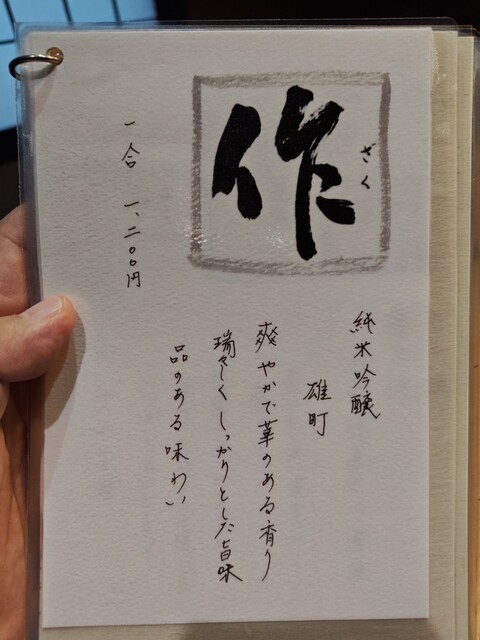 作
ざく
純米吟醸
雄町
爽やかで華のある香り
瑞々しくしっかりとした旨味
品のある味わい
一合 一、二〇〇円